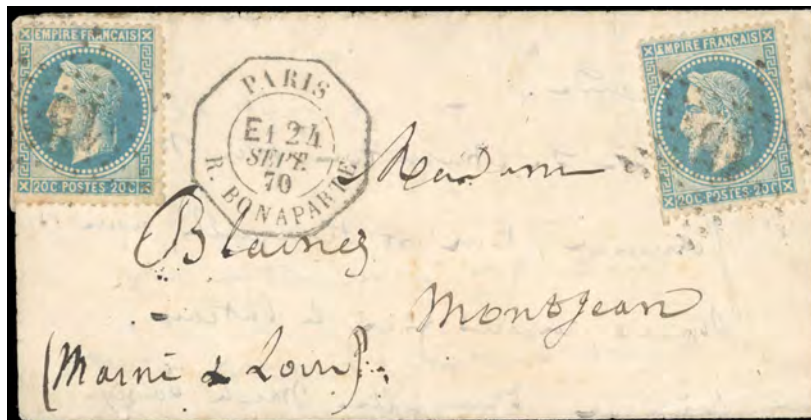 EMPIRE FRANCAIS
20C POSTES 20C
PARIS
E1 24
SEPT.
70
R. BONAPARTE
EMPIRE FRANCAIS
20C POSTES 20C
Madame
Blaines
Montjean
(Maine & Loire).